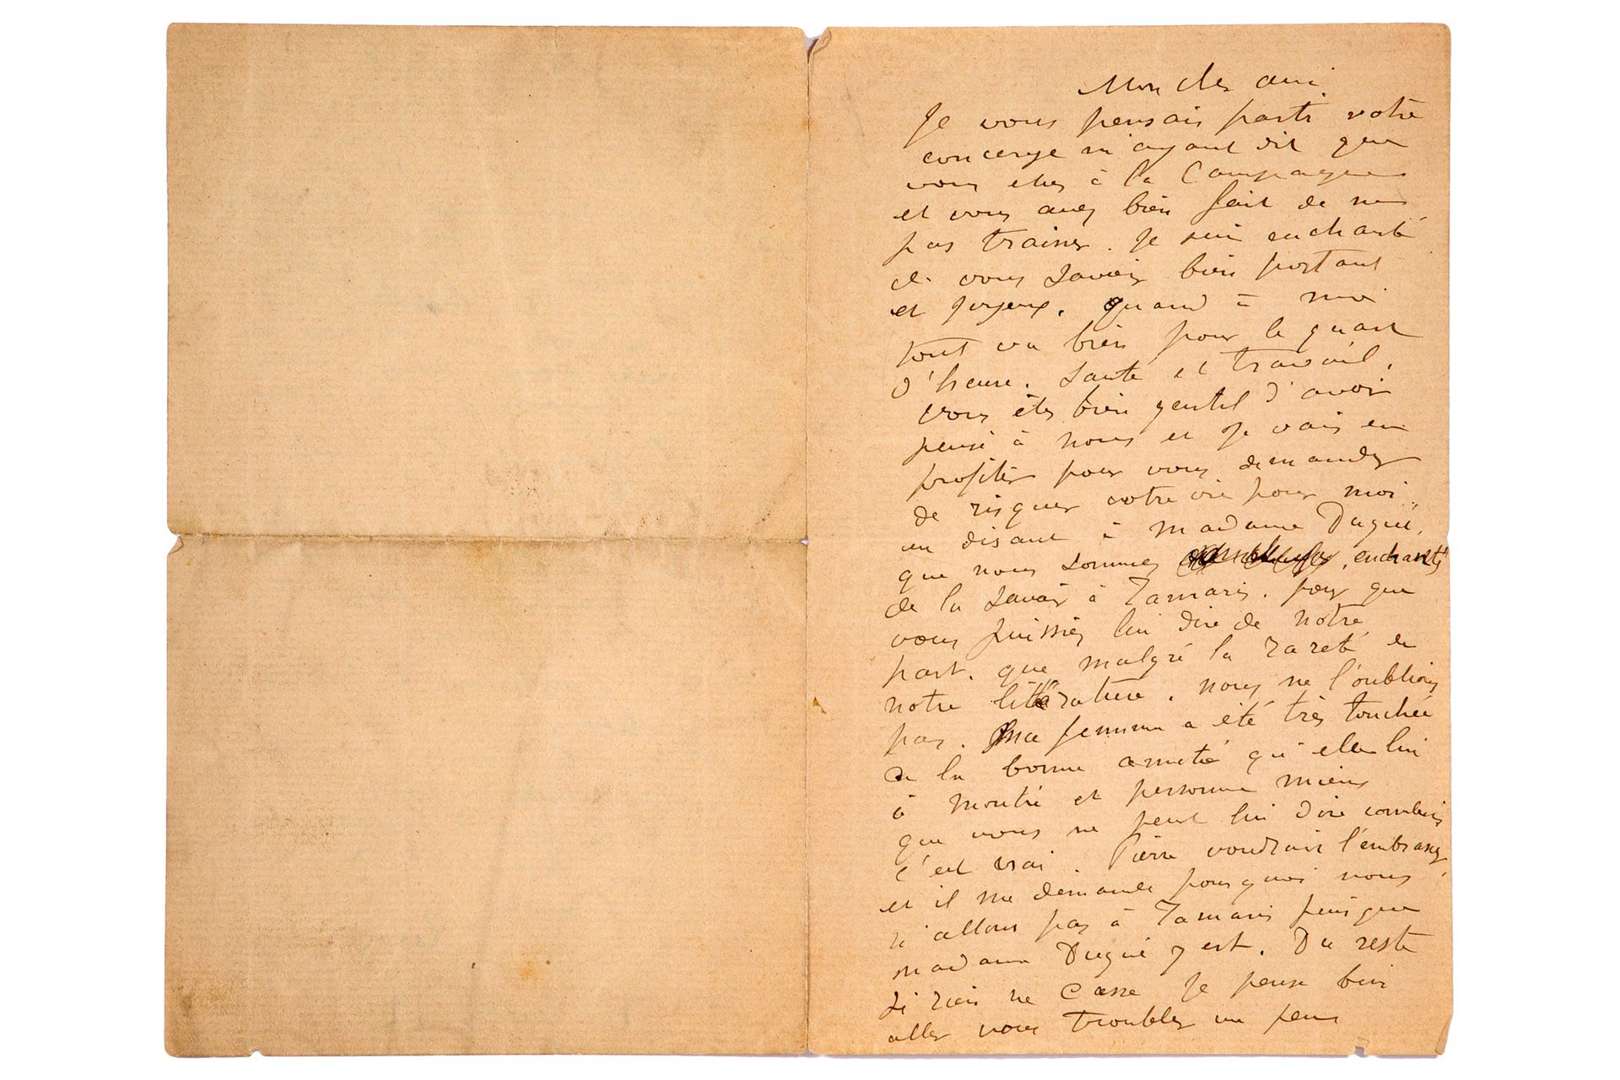 Mon cher ami.
Je vous pensais parti votre
concierge m'ayant dit que
vous etes à la Campagne
et vous avez bien fait de ne
pas trainer. Je suis enchanté
de vous savoir bien portant
et joyeux. quand à moi
tout va bien pour le quart
d'heure. Santé et travail.
Vous êtes bien gentil d'avoir
pensé à nous et je vais en
profiter pour vous demander
de risquer votre vie pour moi
en disant à madame Dugué.
que nous sommes enchantés
de la savoir à Tamaris. pour que
vous puissiez lui dire de notre
part. que malgré la rareté de
notre littérature. nous ne l'oublions
pas. Ma femme a été très touchée
de la bonne amitié qu'elle lui
à montré et personne mieux
que vous ne peut lui dire combien
c'est vrai. Pierre voudrait l'embrasser,
et il me demande pourquoi nous
n'allons pas à Tamaris puisque
madame Dugué y est. Du reste
si rien ne casse je pense bien
aller vous troubler un peu